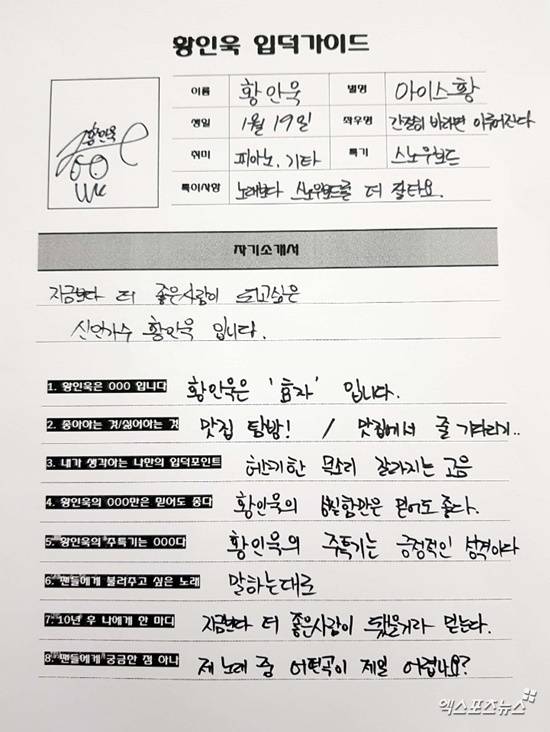 황인욱 입덕가이드
황인욱
이름 황인욱 별명 아이스황
생일 1월 19일 좌우명 간절히 바라면 이루어진다
취미 피아노, 기타 특기 스노우보드
특이사항 노래보다 스노우보드를 더 잘타요.
자기소개서
지금보다 더 좋은사람이 되고싶은
신인가수 황인욱 입니다.
1. 황인욱은 OOO 입니다 황인욱은 '효자' 입니다.
2. 좋아하는 것/싫어하는 것 맛집 탐방! / 맛집에서 줄 기다리기..
3. 내가 생각하는 나만의 입덕포인트 허스키한 목소리 갈라지는 고음
4. 황인욱의 OOO만은 믿어도 좋다 황인욱의 성실함만은 믿어도 좋다.
5. 황인욱의 주특기는 OOO다 황인욱의 주특기는 긍정적인 성격이다
6. 팬들에게 불러주고 싶은 노래 말하는대로
7. 10년 후 나에게 한 마디 지금보다 더 좋은사람이 됐을거라 믿는다.
8. 팬들에게 궁금한 점 하나 제 노래 중 어떤곡이 제일 어렵나요?
엑스포츠뉴스